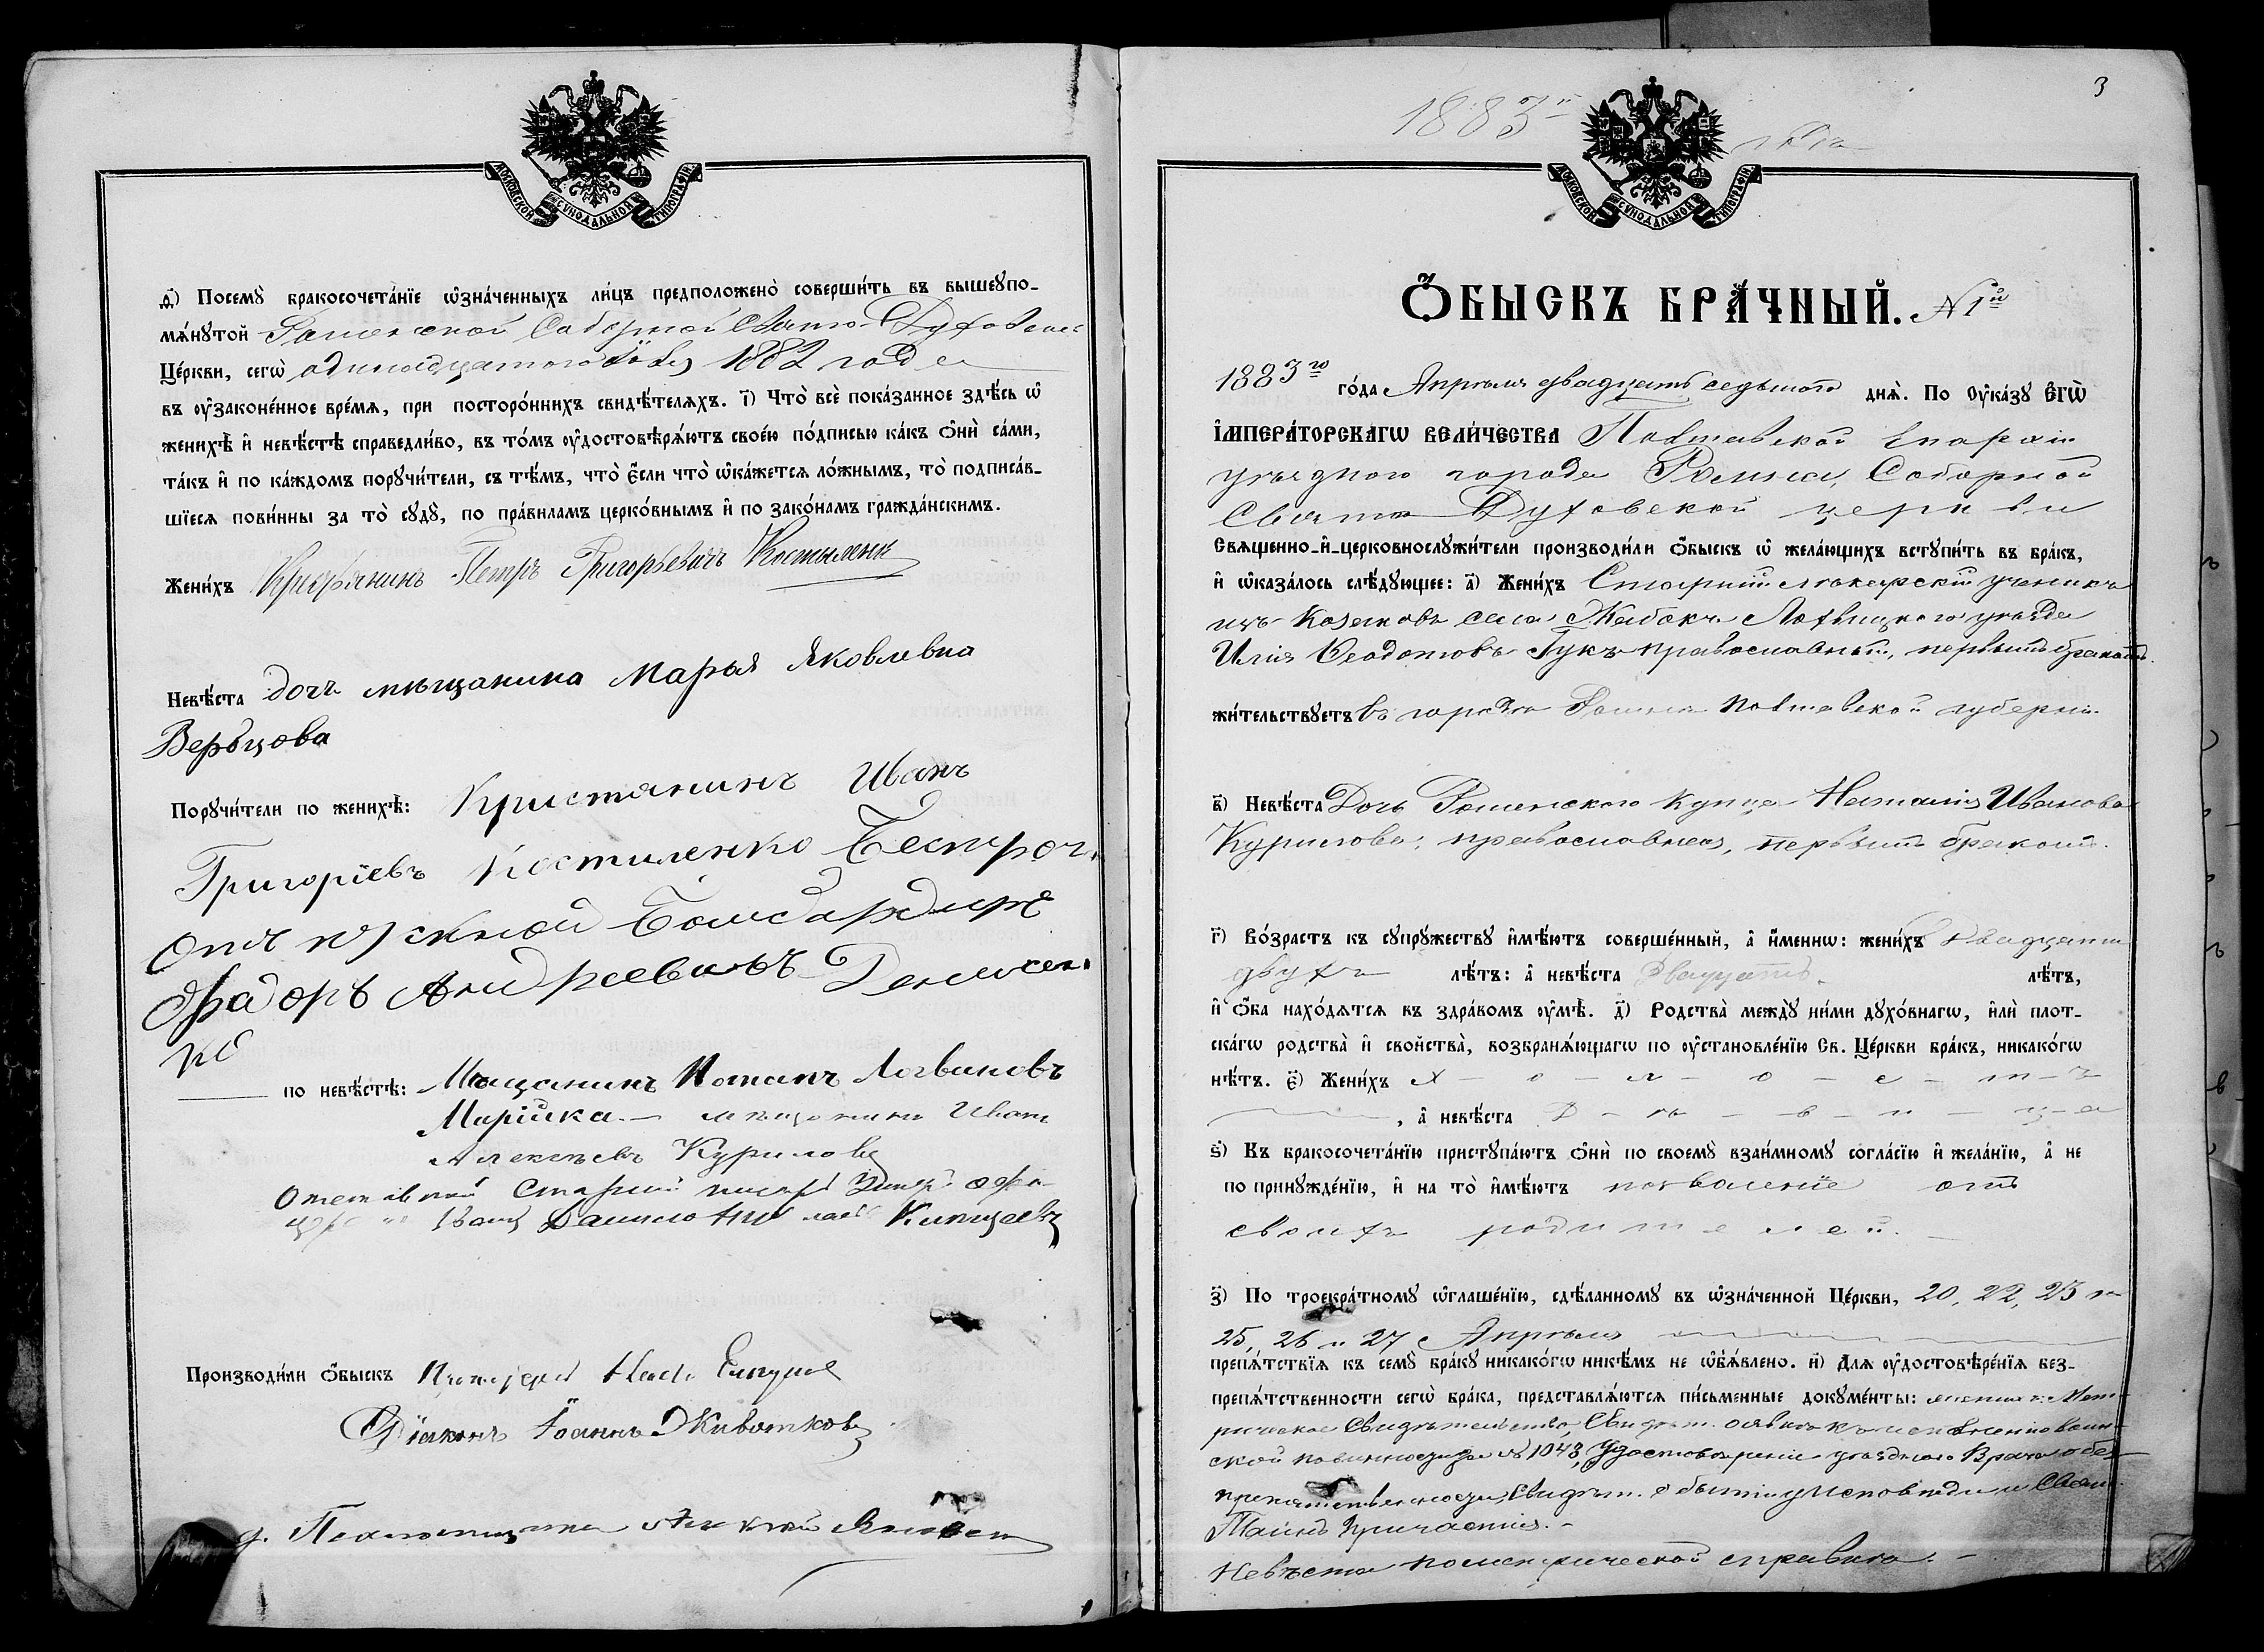 МОСКОВСКОЙ СѴНОДАЛЬНОЙ ТИПОГРАФІИ
ѳ҃) Посемꙋ̀ бракосочета́нїе ѡ҆зна́ченныхъ ли́цъ предположено̀ соверши́ть въ вышеꙋпо-
мѧ́нꙋтой Роменской Соборной Свято-Духовской
Це́ркви, сегѡ̀ одинадцатого 1882 года
въ ᲂу҆зако́ненное вре́мѧ, при посторо́ннихъ свидѣ́телѧхъ. і҃) Что̀ всѐ пока́занное здѣ́сь ѡ҆
женихѣ̀ и҆ невѣ́стѣ справедли́во, въ то́мъ ᲂу҆достовѣрѧ́ютъ свое́ю по́дписью ка́къ ѻ҆нѝ са́ми,
та́къ и҆ по ка́ждомъ порꙋчи́тели, съ тѣ́мъ, что̀ є҆́сли что̀ ѡ҆ка́жется ло́жнымъ, то̀ подписа́в-
шїесѧ пови́нны за то̀ сꙋдꙋ̀, по пра́виламъ церко́внымъ и҆ по зако́намъ гражда́нскимъ.
Жени́хъ Петръ Григорьевичъ Костыленк
Невѣ́ста дочь мѣщанина Марья Яковлевна
Верьцова
Порꙋчи́тели по женихѣ̀: Кристянинъ Иванъ
Григоріевъ Костиленко Бесироч.
Бомбардиръ
Андреевичъ Денисен
ко
по невѣ́стѣ: Мѣщанинъ Потапъ Логвиновъ
Марійка. мѣщанинъ Иванъ
Алексѣевъ Куриловъ
Отставной Старшій писарь Унтеръ офи
Иванъ Даниловъ Кипцаевъ
Производи́ли ѻ҆́быскъ Протоіерей
Діаконъ Іоаннъ Животковъ
3
1883
года
МОСКОВСКОЙ СѴНОДАЛЬНОЙ ТИПОГРАФІИ
Ѻ҆́БЫСКЪ БРА́ЧНЫЙ. № 1й
1883го го́да Апрѣля двадцать седьмого днѧ̀. По ᲂу҆ка́зꙋ Є҆гѡ̀
І҆МПЕРА́ТОРСКАГѠ ВЕЛИ́ЧЕСТВА Полтавской Епархіи
уѣзднаго города Ромна, Соборной
Свято Духовской церкви
Свѧще́нно-и҆-церковнослꙋжи́тели производи́ли ѻ҆́быскъ ѡ҆ жела́ющихъ встꙋпи́ть въ бра́къ,
и҆ ѡ҆каза́лось слѣ́дꙋющее: а҃) Жени́хъ Старшій токарскій ученикъ
изъ Козаковъ села Жабокъ Лохвицкого уѣзда
Илія Ѳеодотовъ Гукъ православный, первымъ бракомъ.
жи́тельствꙋетъ въ городѣ Ромнѣ Полтавской губерніи
в҃) Невѣ́ста Дочь Роменского Купца Наталія Иванова
Курилова, православная, первымъ бракомъ.
г҃) Во́зрастъ къ сꙋпрꙋ́жествꙋ и҆мѣ́ютъ соверше́нный, а҆ и҆́меннѡ: жени́хъ двадцати
двухъ лѣ́тъ: а҆ невѣ́ста двадцать. лѣ́тъ,
и҆ ѻ҆́ба нахо́дѧтсѧ въ здра́вомъ ᲂу҆мѣ̀. д҃) Родства̀ междꙋ̀ ни́ми дꙋхо́внагѡ, и҆лѝ плот-
ска́гѡ родства̀ и҆ свойства̀, возбранѧ́ющагѡ по ᲂу҆становле́нїю Св. Це́ркви бра́къ, никако́гѡ
нѣ́тъ. є҃) Жени́хъ х – о – л – о – с – т – ъ
, а҆ невѣ́ста Д – ѣ – в – и – ц – а
ѕ҃) Къ бракосочета́нїю пристꙋпа́ютъ ѻ҆нѝ по своемꙋ̀ взаи́мномꙋ согла́сїю и҆ жела́нїю, а҆ не
по принꙋжде́нїю, и҆ на то̀ и҆мѣ́ютъ позволеніе отъ
своихъ родителей.
з҃) По троекра́тномꙋ ѡ҆глаше́нїю, сдѣ́ланномꙋ въ ѡ҆зна́ченной Це́ркви, 20, 22, 23 и
25, 26 и 27 Апрѣля
препѧ́тствїѧ къ семꙋ̀ бра́кꙋ никако́гѡ никѣ́мъ не ѡ҆б̾ѧ́влено. и҃) Длѧ ᲂу҆достовѣре́нїѧ без-
препѧ́тственности сегѡ̀ бра́ка, представлѧ́ютсѧ пи́сьменные докꙋме́нты: жениха: Мет-
рическое Свидѣтельство, Свидѣт. о явкѣ къ исполненію воин-
ской повинности за № 1043, Удостовѣреніе уѣздного Врача о без-
препятственности, Свидѣт. о бытіи у Исповѣди и Свят.
Таинъ Причастія. –
Невѣста по метрической справкѣ. –